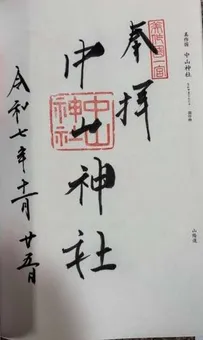 美作國 中山神社
美作國一宮
奉拝
中山神社
中山神社
令和七年十一月廿五日